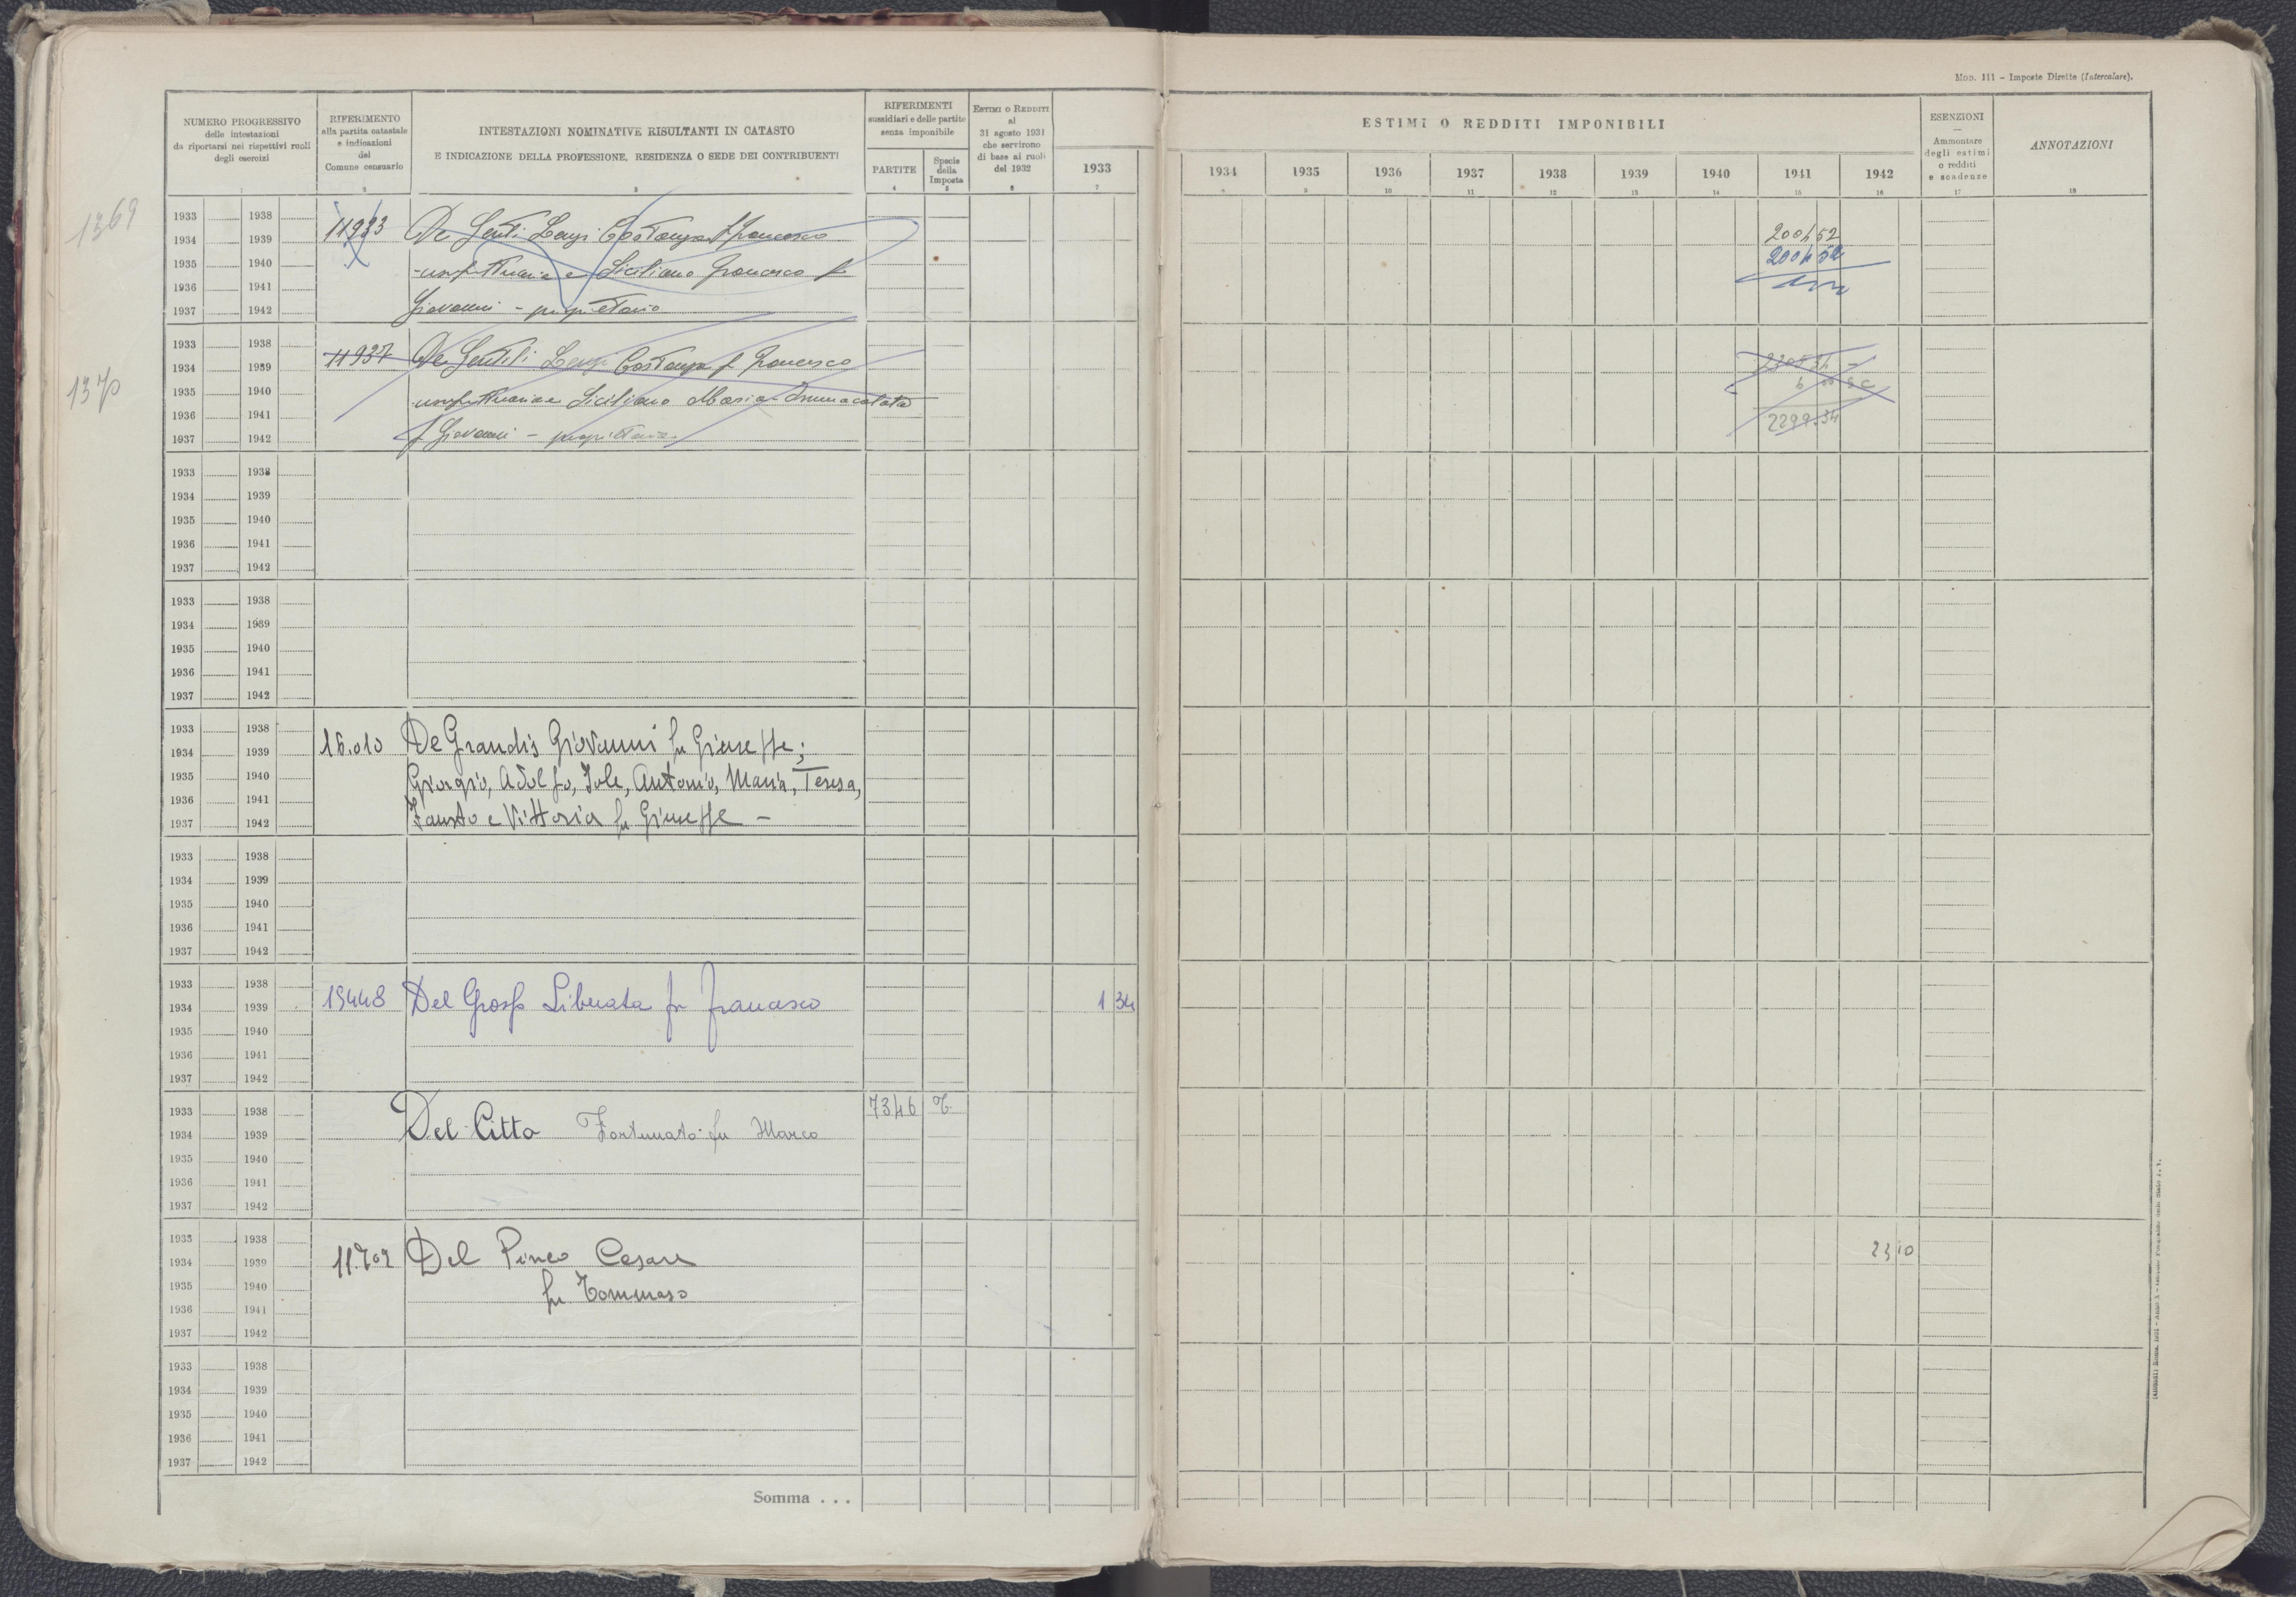 MOD. 111 – Imposte Dirette (Intercalare).
NUMERO PROGRESSIVO
delle intestazioni
da riportarsi nei rispettivi ruoli
degli esercizi
RIFERIMENTO
alla partita catastale
e indicazioni
del
Comune censuario
INTESTAZIONI NOMINATIVE RISULTANTI IN CATASTO
E INDICAZIONE DELLA PROFESSIONE, RESIDENZA O SEDE DEI CONTRIBUENTI
RIFERIMENTI
sussidiari e delle partite
senza imponibile
PARTITE
Specie
della
Imposta
ESTIMI O REDDITI
al
31 agosto 1931
che servirono
di base ai ruoli
del 1932
1933
ESTIMI O REDDITI IMPONIBILI
1934 1935 1936 1937 1938 1939 1940 1941 1942
ESENZIONI
—
Ammontare
degli estimi
o redditi
e scadenze
ANNOTAZIONI
1 2 3 4 5 6 7 8 9 10 11 12 13 14 15 16 17 18
1369
1933 1938
1934 1939 11933 De Costanza f Francesco 2004 52
1935 1940 usufruttuaria e Siciliano Francesco f 2004 52
1936 1941
1937 1942 Giovanni – proprietario
1370
1933 1938
1934 1939 11937 De Gentili Costanza f Francesco
1935 1940 usufruttuaria e Siciliano Maria Immacolata
1936 1941
1937 1942 f Giovanni – proprietaria 2299.34
1933 1938
1934 1939
1935 1940
1936 1941
1937 1942
1933 1938
1934 1939
1935 1940
1936 1941
1937 1942
1933 1938
1934 1939 16.010 De Grandis Giovanni fu Giuseppe;
1935 1940 Giorgio, Adolfo, Iole, Antonio, Maria, Teresa,
1936 1941
1937 1942 Fausto e Vittoria fu Giuseppe –
1933 1938
1934 1939
1935 1940
1936 1941
1937 1942
1933 1938
1934 1939 15448 Del Grosso Liberata fu Francesco 1 34
1935 1940
1936 1941
1937 1942
1933 1938 7346 T.
1934 1939 Del Citto Fortunato fu Marco
1935 1940
1936 1941
1937 1942
1933 1938
1934 1939 11.702 Del Pinco Cesare 23 10
1935 1940 fu Tommaso
1936 1941
1937 1942
1933 1938
1934 1939
1935 1940
1936 1941
1937 1942
Somma . . .